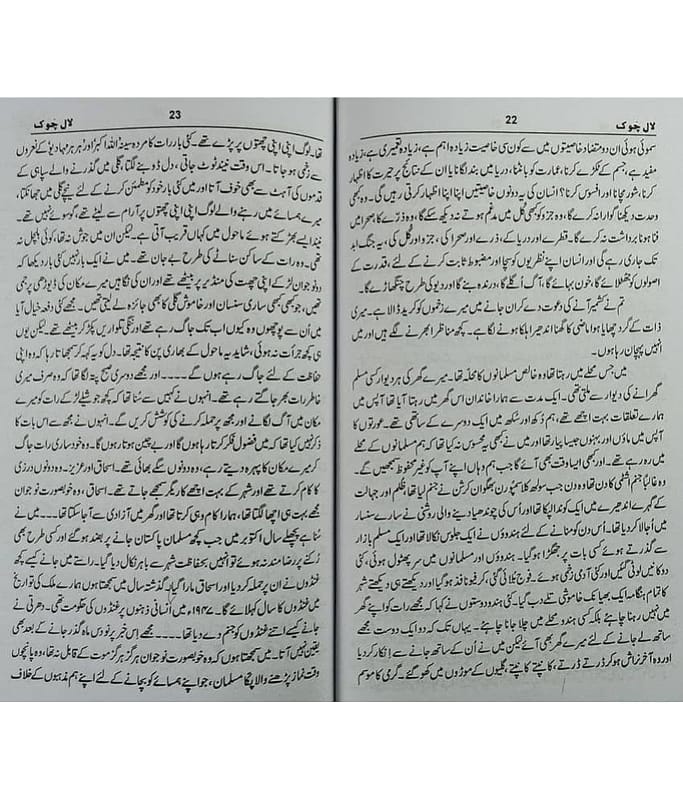 لال چوک
22
سموئی ہوئی ان دو متضاد خاصیتوں میں سے کون سی خاصیت زیادہ اہم ہے، زیادہ تعمیری ہے، زیادہ
مفید ہے، جسم کے ٹکڑے کرنا، عمارت کو بانٹنا، دریا میں بند لگانا یا ان کے نتائج پر حیرت کا اظہار
کرنا، شور مچانا اور افسوس کرنا؟ انسان کی یہ دونوں خاصیتیں اپنا اپنا اظہار کرتی رہیں گی۔ وہ کبھی
وحدت دیکھنا گوارا نہ کرے گا، وہ جزو کو کبھی کُل میں مدغم ہوتے نہ دیکھ سکے گا، وہ ذرّے کا صحرا میں
فنا ہونا برداشت نہ کرے گا۔ قطرے اور دریا کے، ذرے اور صحرا کی، جزو اور کُل کی، یہ جنگ ابد
تک جاری رہے گی اور انسان اپنے نظریوں کو سچا اور مضبوط ثابت کرنے کے لئے، قدرت کے
اصولوں کو جھٹلائے گا، خون بہائے گا، آگ اُگلے گا، درندہ بنے گا اور دیو کی طرح چنگھاڑے گا۔
تم نے کشمیر آنے کی دعوت دے کر ان جانے میں میرے زخموں کو کرید ڈالا ہے۔ میری
ذات کے گرد چھایا ہوا ماضی کا گھنا اندھیرا ہلکا ہونے لگا ہے۔ کچھ مناظر ابھرنے لگے ہیں اور میں
انہیں پہچان رہا ہوں۔
میں جس محلے میں رہتا تھا وہ خالص مسلمانوں کا محلہ تھا۔ میرے گھر کی ہر دیوار کسی مسلم
گھرانے کی دیوار سے ملتی تھی۔ ایک مدت سے ہمارا خاندان اس گھر میں رہتا آیا تھا آپس میں
ہمارے تعلقات بہت اچھے تھے، ہم دُکھ اور سُکھ میں ایک دوسرے کے ساتھی تھے۔ عورتوں کا
آپس میں ماؤں اور بہنوں جیسا پیار تھا اور میں نے کبھی یہ محسوس نہ کیا تھا کہ ہم مسلمانوں کے محلے
میں رہ رہے تھے۔ اور کبھی ایسا وقت بھی آئے گا جب ہم وہاں اپنے آپ کو غیر محفوظ سمجھیں گے۔
وہ غالباً جنم اشٹمی کا دن تھا، وہ دن جب سولہ کلا سمپورن بھگوان کرشن نے جنم لیا تھا، ظلم اور جہالت
کے گہرے اندھیرے میں ایک کوندا لپکا تھا اور اُس کی چوندھیا دینے والی روشنی نے سارے سنسار
میں اُجالا کر دیا تھا۔ اُس دن کو منانے کے لئے ہندوؤں نے ایک جلوس نکالا تھا اور ایک مسلم بازار
سے گذرتے ہوئے کسی بات پر جھگڑا ہو گیا۔ ہندوؤں اور مسلمانوں میں سر پھٹول ہوئی، کئی
دوکانیں لوٹی گئیں اور کئی آدمی زخمی ہوئے۔ فوج بلائی گئی، کرفیو نافذ ہو گیا اور دیکھتے ہی دیکھتے شہر
کا تمام ہنگامہ ایک بھیانک خاموشی تلے دب گیا۔ کئی ہندو دوستوں نے کہا کہ مجھے رات کو اپنے گھر
میں نہیں رہنا چاہئے بلکہ کسی ہندو محلے میں چلا جانا چاہئے۔ یہاں تک کہ دو ایک دوست مجھے
ساتھ لے جانے کے لئے میرے گھر بھی آئے لیکن میں نے اُن کے ساتھ جانے سے انکار کر دیا
اور وہ آخر نراش ہو کر ڈرتے ڈرتے، کانپتے کانپتے، گلیوں کے موڑوں میں کھو گئے۔ گرمی کا موسم
23
لال چوک
تھا۔ لوگ اپنی اپنی چھتوں پر پڑے تھے۔ کئی بار رات کا مردہ سینہ اللہ اکبر اور ہر ہر مہادیو کے نعروں
سے زخمی ہو جاتا۔ اس وقت نیند ٹوٹ جاتی، دل ڈوبنے لگتا، گلی میں گذرنے والے سپاہی کے
قدموں کی آہٹ سے بھی خوف آتا اور میں کئی بار خود کو مطمئن کرنے کے لئے نیچے گلی میں جھانکتا،
میرے ہمسائے میں رہنے والے لوگ اپنی اپنی چھتوں پر آرام سے لیٹے تھے، گو سوئے نہیں تھے۔
نیند ایسے بھڑکتے ہوئے ماحول میں کہاں قریب آتی ہے۔ لیکن ان میں جوش نہ تھا، کوئی ہلچل نہ
تھی۔ وہ رات کے ساکن سناٹے کی طرح بے جان تھے۔ میں نے ایک بار نہیں کئی بار دیکھا کہ
دو نوجوان لڑکے اپنی چھت کی منڈیر پر بیٹھے تھے اور ان کی نگاہیں میرے مکان کی ڈیوڑھی پر جمی
ہیں، جو کبھی کبھی ساری سنسان اور خاموش گلی کا بھی جائزہ لے لیتی تھیں۔ مجھے کئی دفعہ خیال آیا
میں اُن سے پوچھوں وہ کیوں اب تک جاگ رہے تھے اور ننگی تلواریں پکڑ کر بیٹھے تھے۔ لیکن یوں
ہی کچھ جرأت نہ ہوئی، شاید یہ ماحول کے بھاری پن کا نتیجہ تھا۔ دل کو یہ کہہ کر سمجھاتا رہا کہ وہ اپنی
حفاظت کے لئے جاگ رہے ہوں گے۔۔۔۔ اور مجھے دوسری صبح پتہ لگا تھا کہ وہ صرف میری
خاطر رات بھر جاگتے رہے تھے۔ انہوں نے کہیں سے سُنا تھا کہ کچھ شیلے لڑکے رات کو میرے
مکان میں آگ لگانے اور مجھ پر حملہ کرنے کی کوشش کریں گے۔ انہوں نے مجھ سے اس بات کا
ذکر نہیں کیا تھا کہ میں فضول فکر کرتا رہا ہوں گا اور بے چین ہوتا رہوں گا۔ وہ خود ساری رات جاگ
کر میرے مکان کا پہرہ دیتے رہے، وہ دونوں سگے بھائی تھے۔ اسحاق اور عزیز۔ وہ دونوں درزی
کا کام کرتے تھے اور شہر کے بہت اچھے کاریگر سمجھے جاتے تھے۔ اسحاق، وہ خوبصورت نوجوان
مجھے بہت ہی اچھا لگتا تھا، ہمارا کام وہی کرتا تھا اور گھر میں آزادی سے آ جا سکتا تھا۔۔۔۔ میں نے
سُنا ہے پچھلے سال اکتوبر میں جب کچھ مسلمان پاکستان جانے پر بضد ہو گئے اور کسی طرح بھی
رُکنے پر رضامند نہ ہوئے تو انہیں بحفاظت شہر سے باہر نکال دیا گیا۔ راستے میں جانے کیسے کچھ
غنڈوں نے ان پر حملہ کر دیا اور اسحاق مارا گیا۔ گذشتہ سال میں سمجھتا ہوں ہمارے ملک کی تواریخ
میں غنڈوں کا سال کہلائے گا۔ ۱۹۴۷ء میں اُنسانی ذہنوں پر غنڈوں کی حکومت تھی۔ دھرتی نے
جانے کیسے اتنے غنڈوں کو جنم دے دیا تھا۔۔۔۔ مجھے اِس خبر پر نو دس ماہ گذر جانے کے بعد بھی
یقین نہیں آتا۔ میں سمجھتا ہوں کہ وہ خوبصورت نوجوان ہرگز ہرگز موت کے قابل نہ تھا، وہ پانچوں
وقت نماز پڑھنے والا پکا مسلمان، جو اپنے ہمسائے کو بچانے کے لئے اپنے ہم مذہبوں کے خلاف